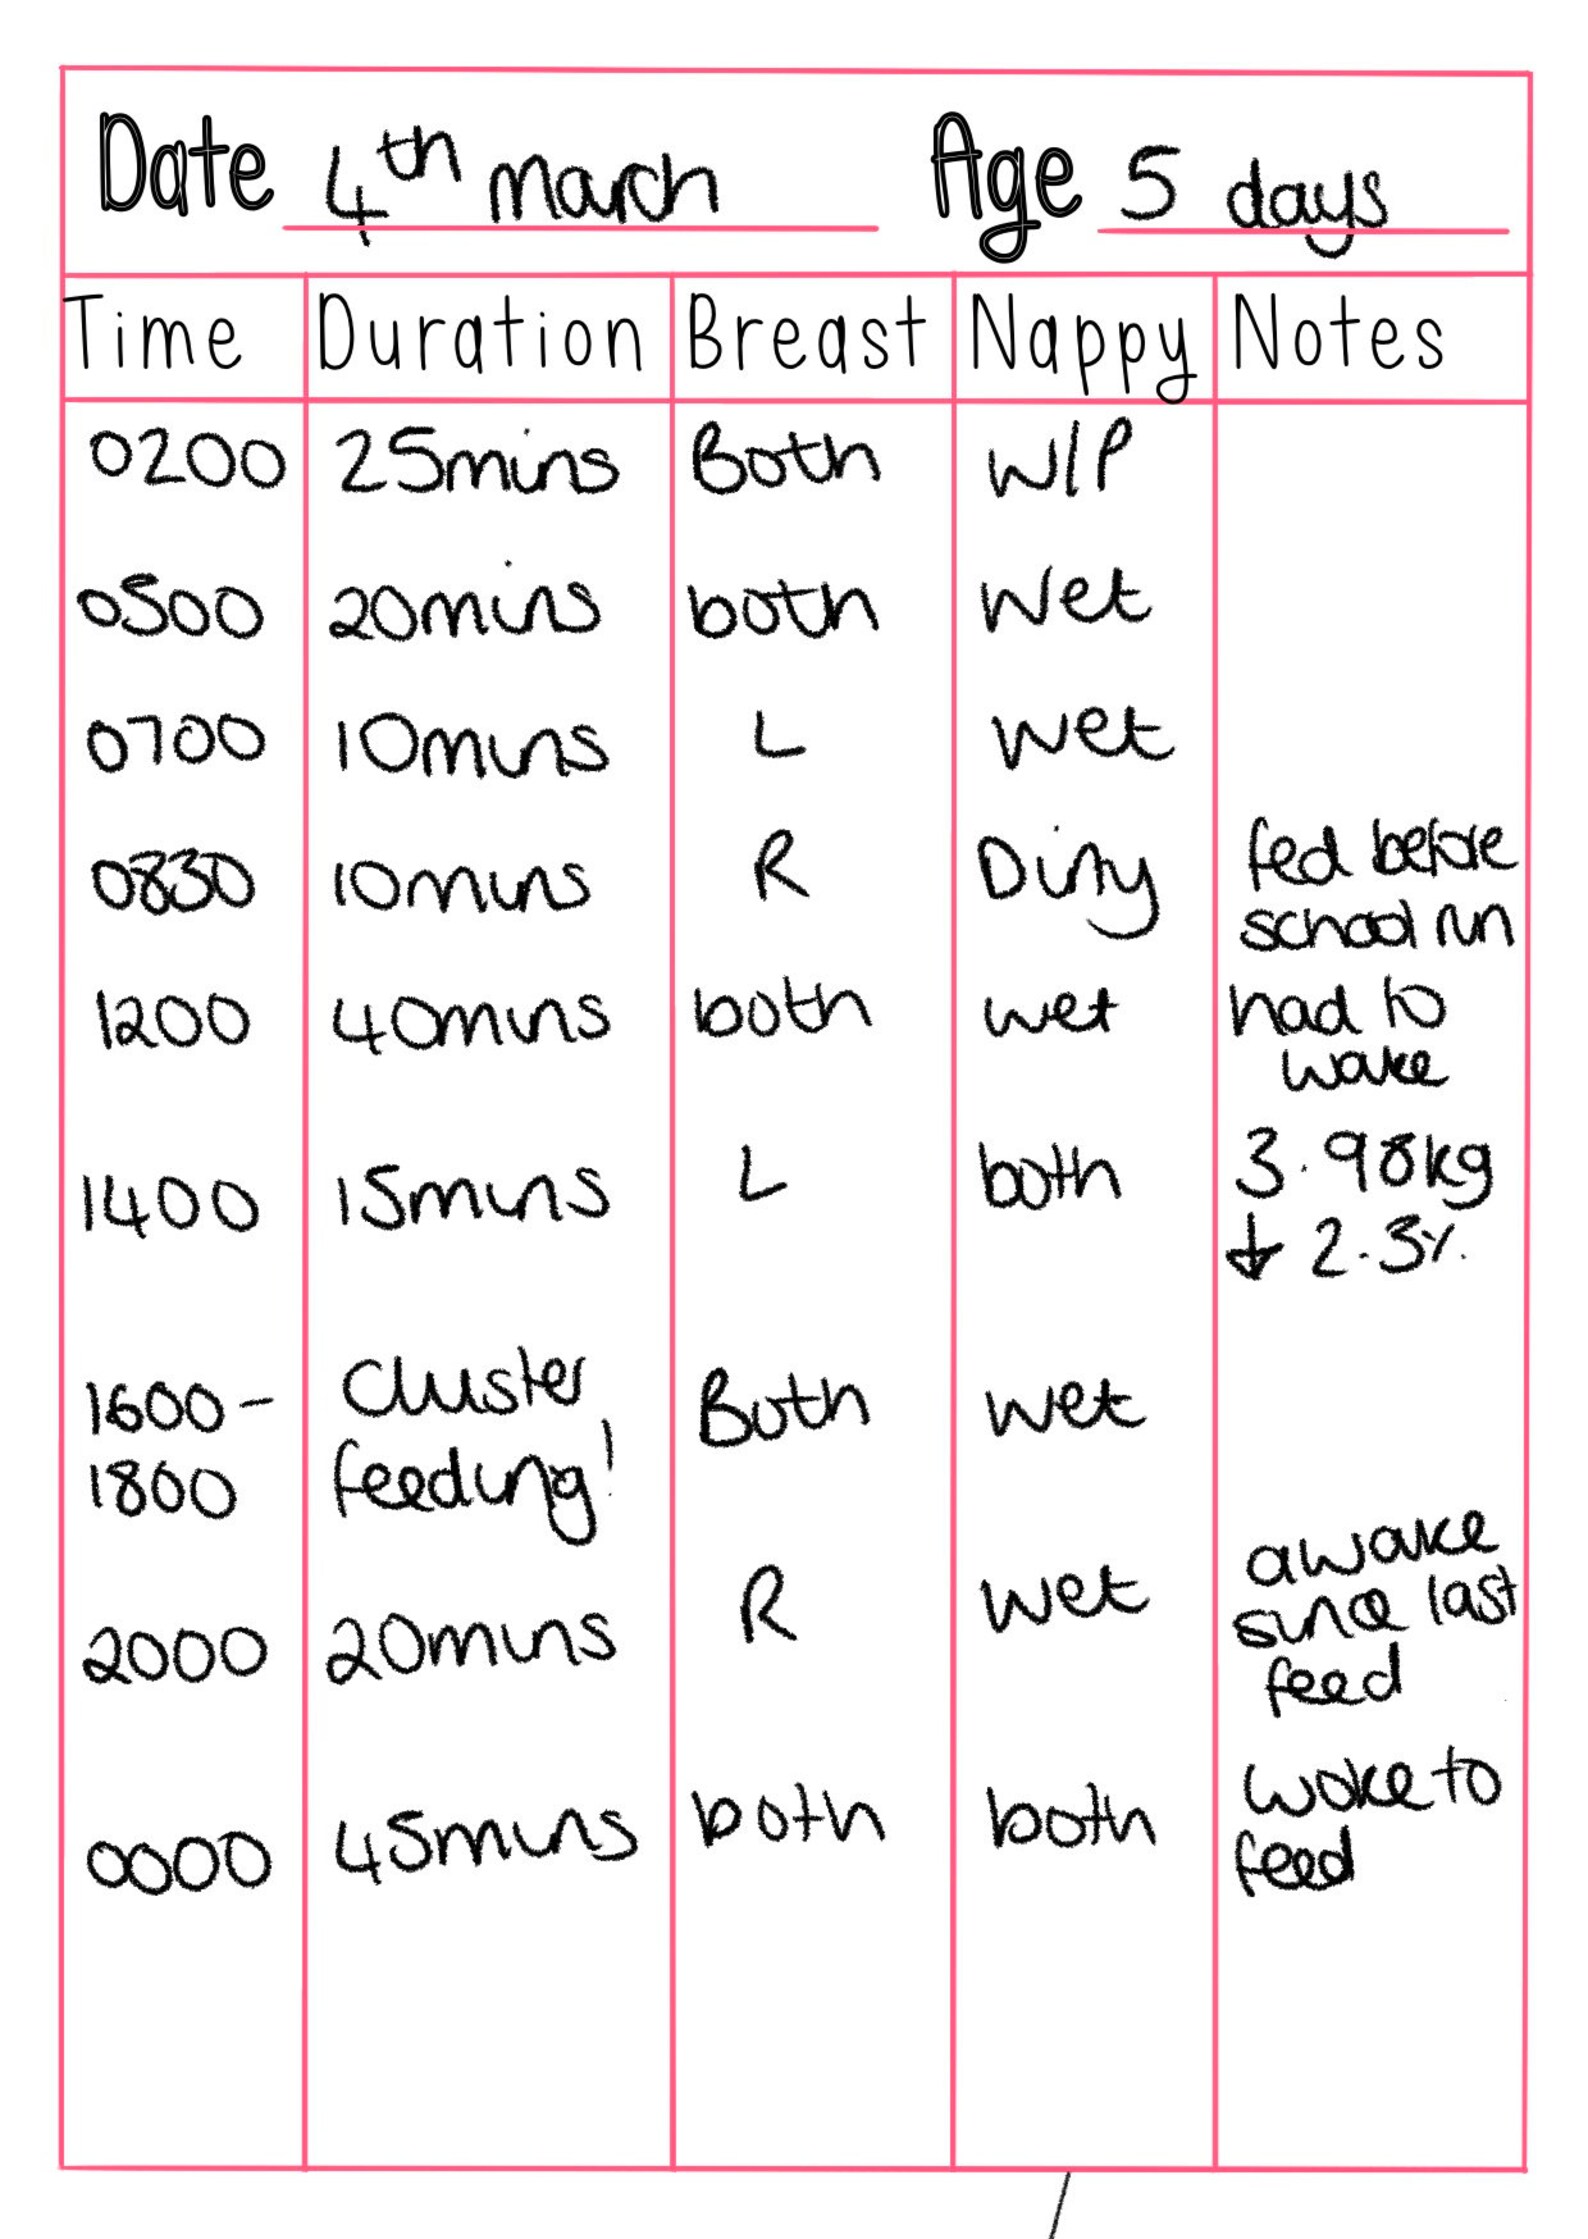 Date 4th march Age 5 days
Time Duration Breast Nappy Notes
0200 25mins Both W/P
0500 20mins both Wet
0700 10mins L wet
0830 10mins R Dirty fed before
school run
1200 40mins both wet had to
wake
1400 15mins L both 3.98kg
↓ 2.3%
1600- Cluster Both wet
1800 feeding!
2000 20mins R wet awake
since last
feed
0000 45mins both both woke to
feed